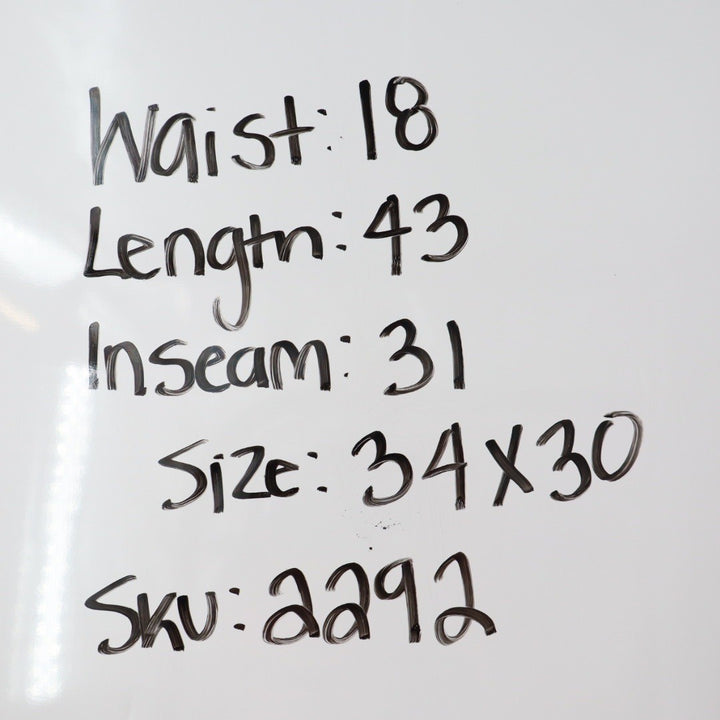 Waist: 18
Length: 43
Inseam: 31
Size: 34x30
Sku: 2292